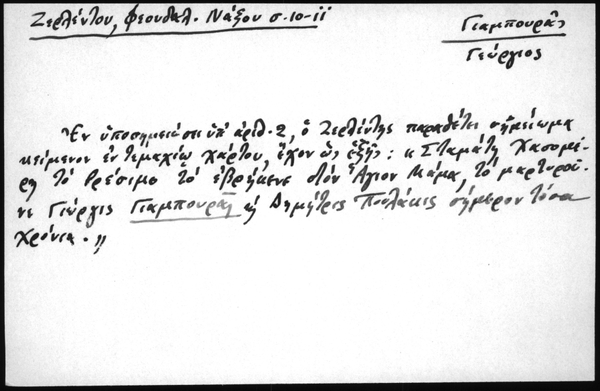 Ζερλέντου, Φεουδαλ. Νάξου σ. 10-11
Γιαμπουρᾶς
Γεώργιος
Ἐν ὑποσημειώσει ὑπ' ἀριθ. 2, ὁ Ζερλέντης παραθέτει σημείωμα
κείμενον ἐν τεμαχίῳ χάρτου, ἔχον ὡς ἑξῆς: « Σταμάτη Χασομέ-
ρη τὸ βρέσιμο τὸ ἐβρήκενε στὸν Ἅγιον Μάμα, τὸ μαρτυροῦ-
νε Γιώργις Γιαμπουρᾶς ϗ Δημήτρις Πουλάκις σήμερον τόσα
χρόνια. »